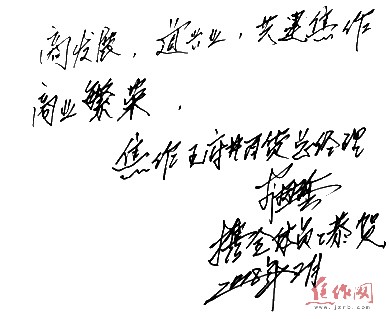 商发展，谊兴业，共建焦作
商业繁荣，
焦作王府井百货总经理
携全体员工恭贺
2008年12月
焦作网
www.jzrb.com